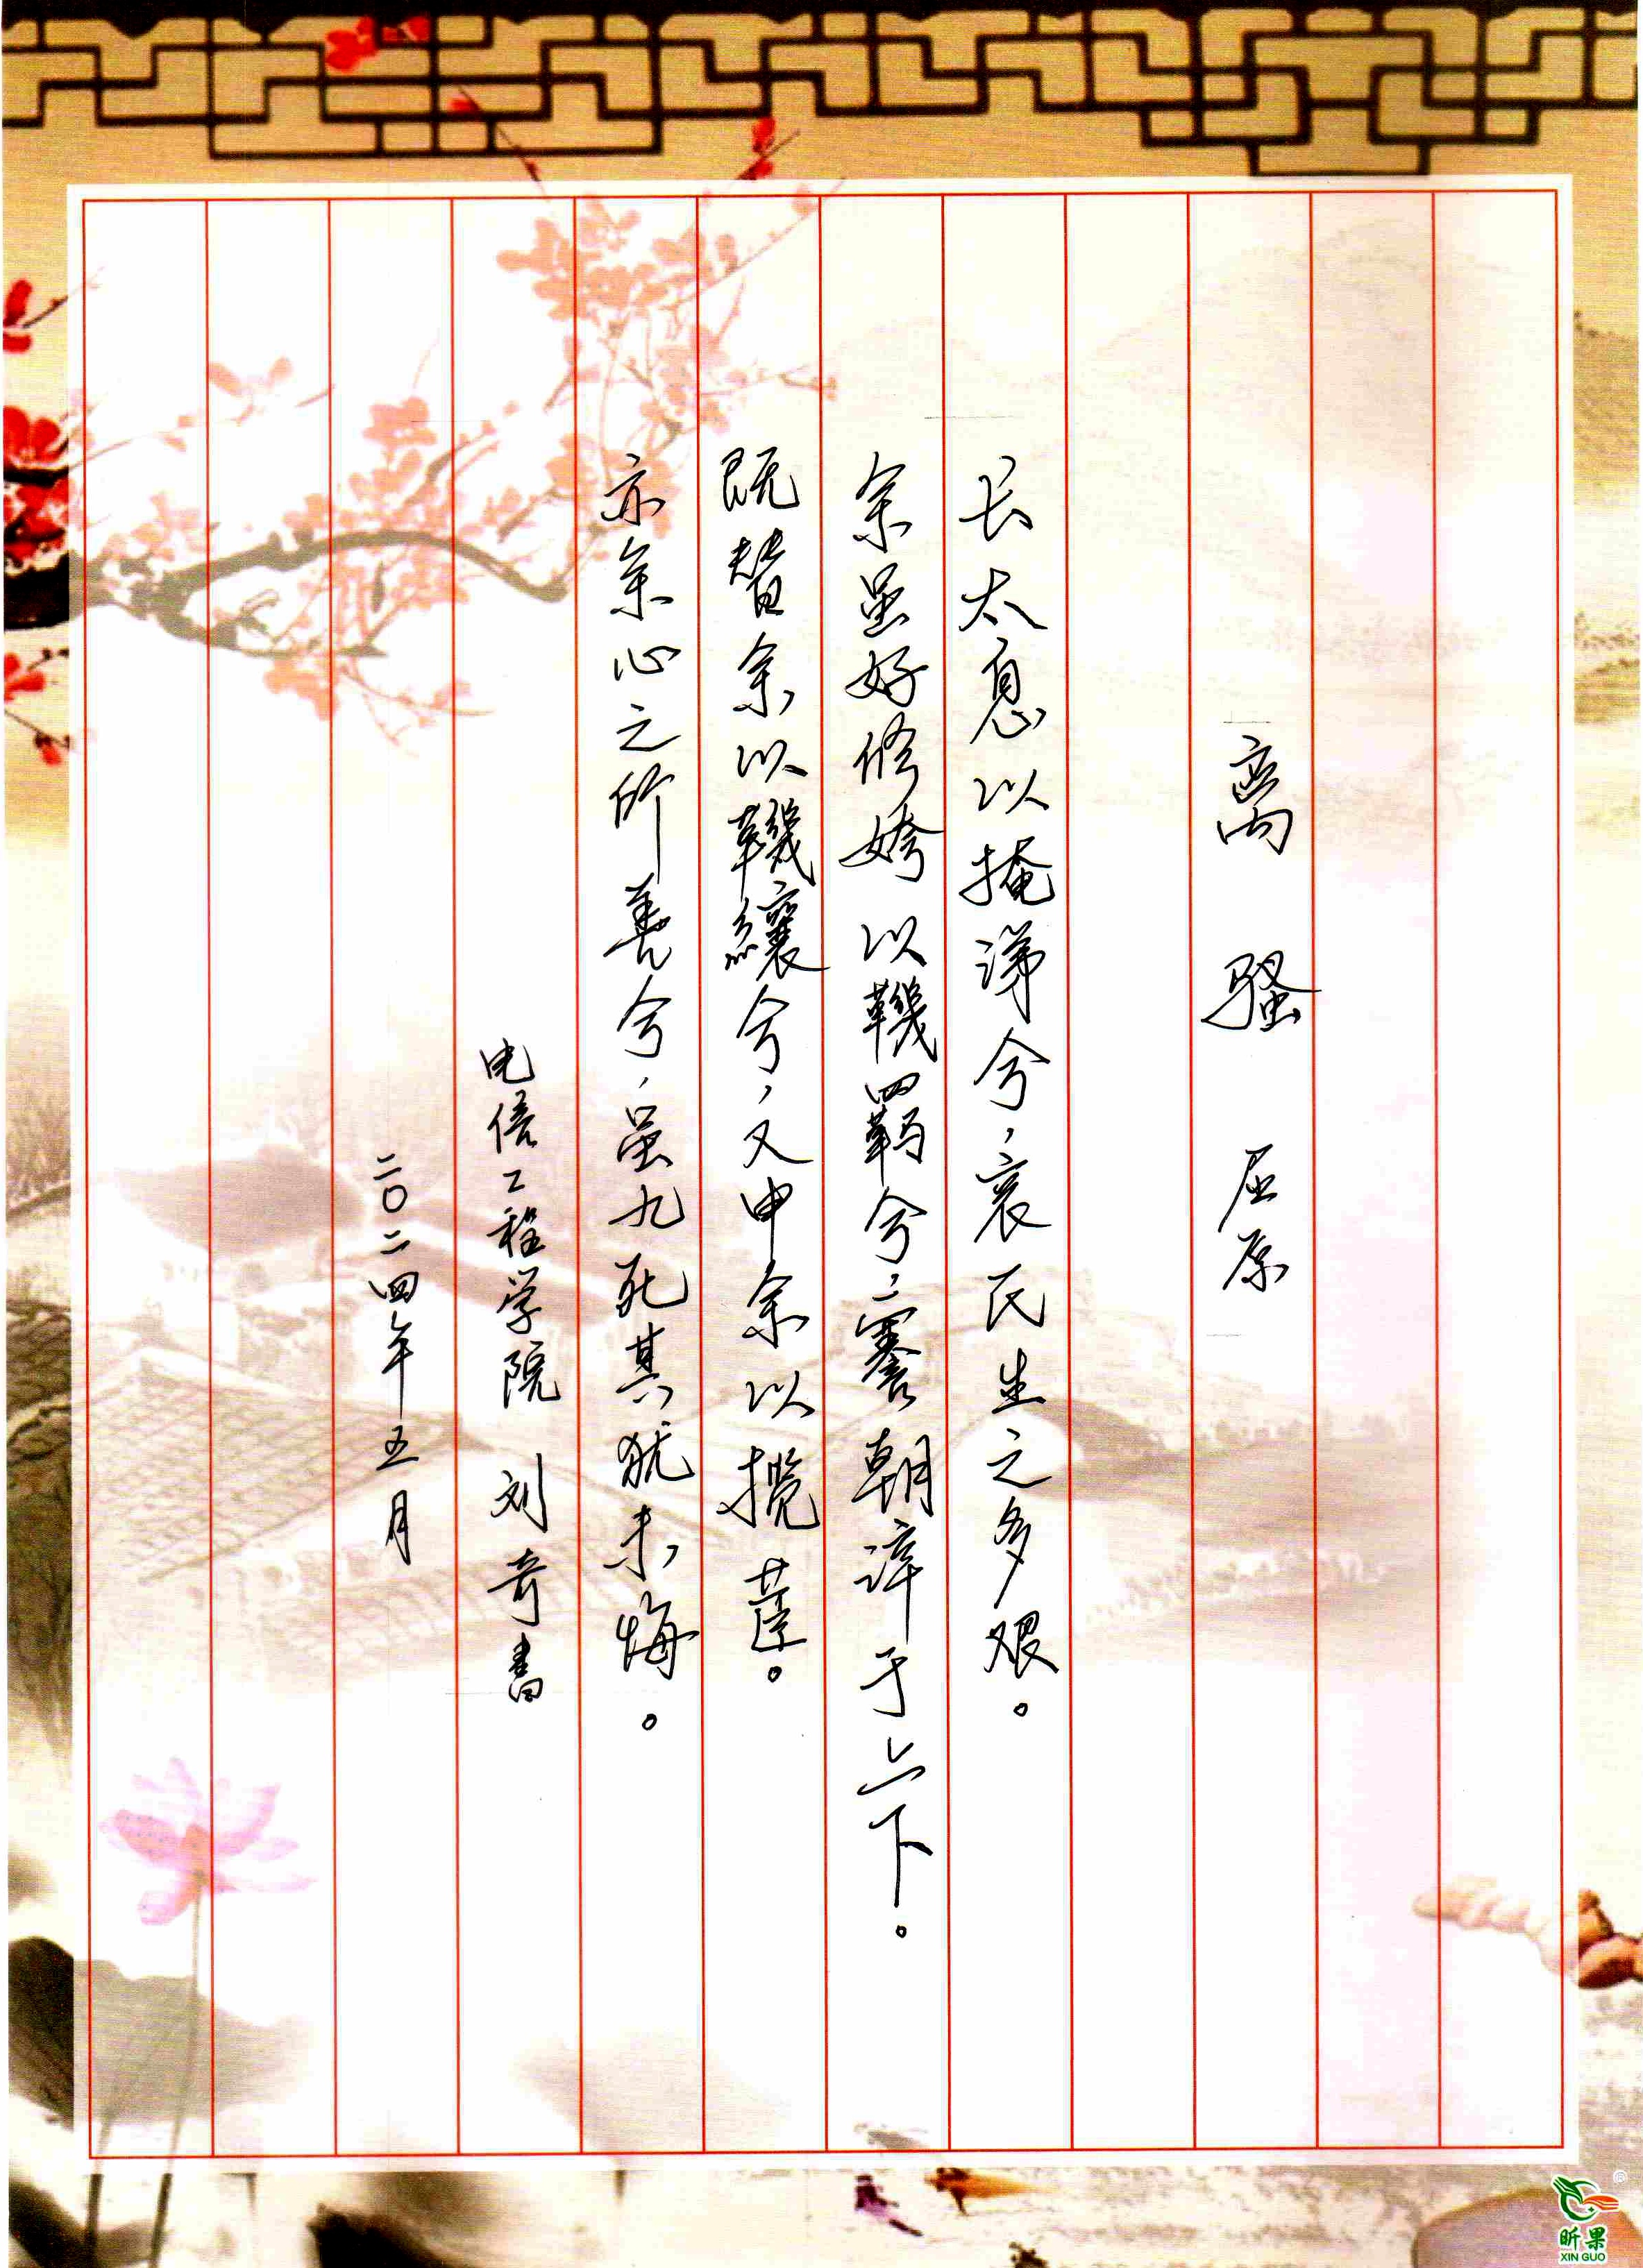 离骚 屈原
长太息以掩涕兮，哀民生之多艰。
余虽好修姱以鞿羁兮，謇朝谇于上下。
既替余以鞿纕兮，又申余以揽茝。
亦余心之所善兮，虽九死其犹未悔。
电信工程学院 刘奇書
二〇二四年五月
昕果
XIN GUO